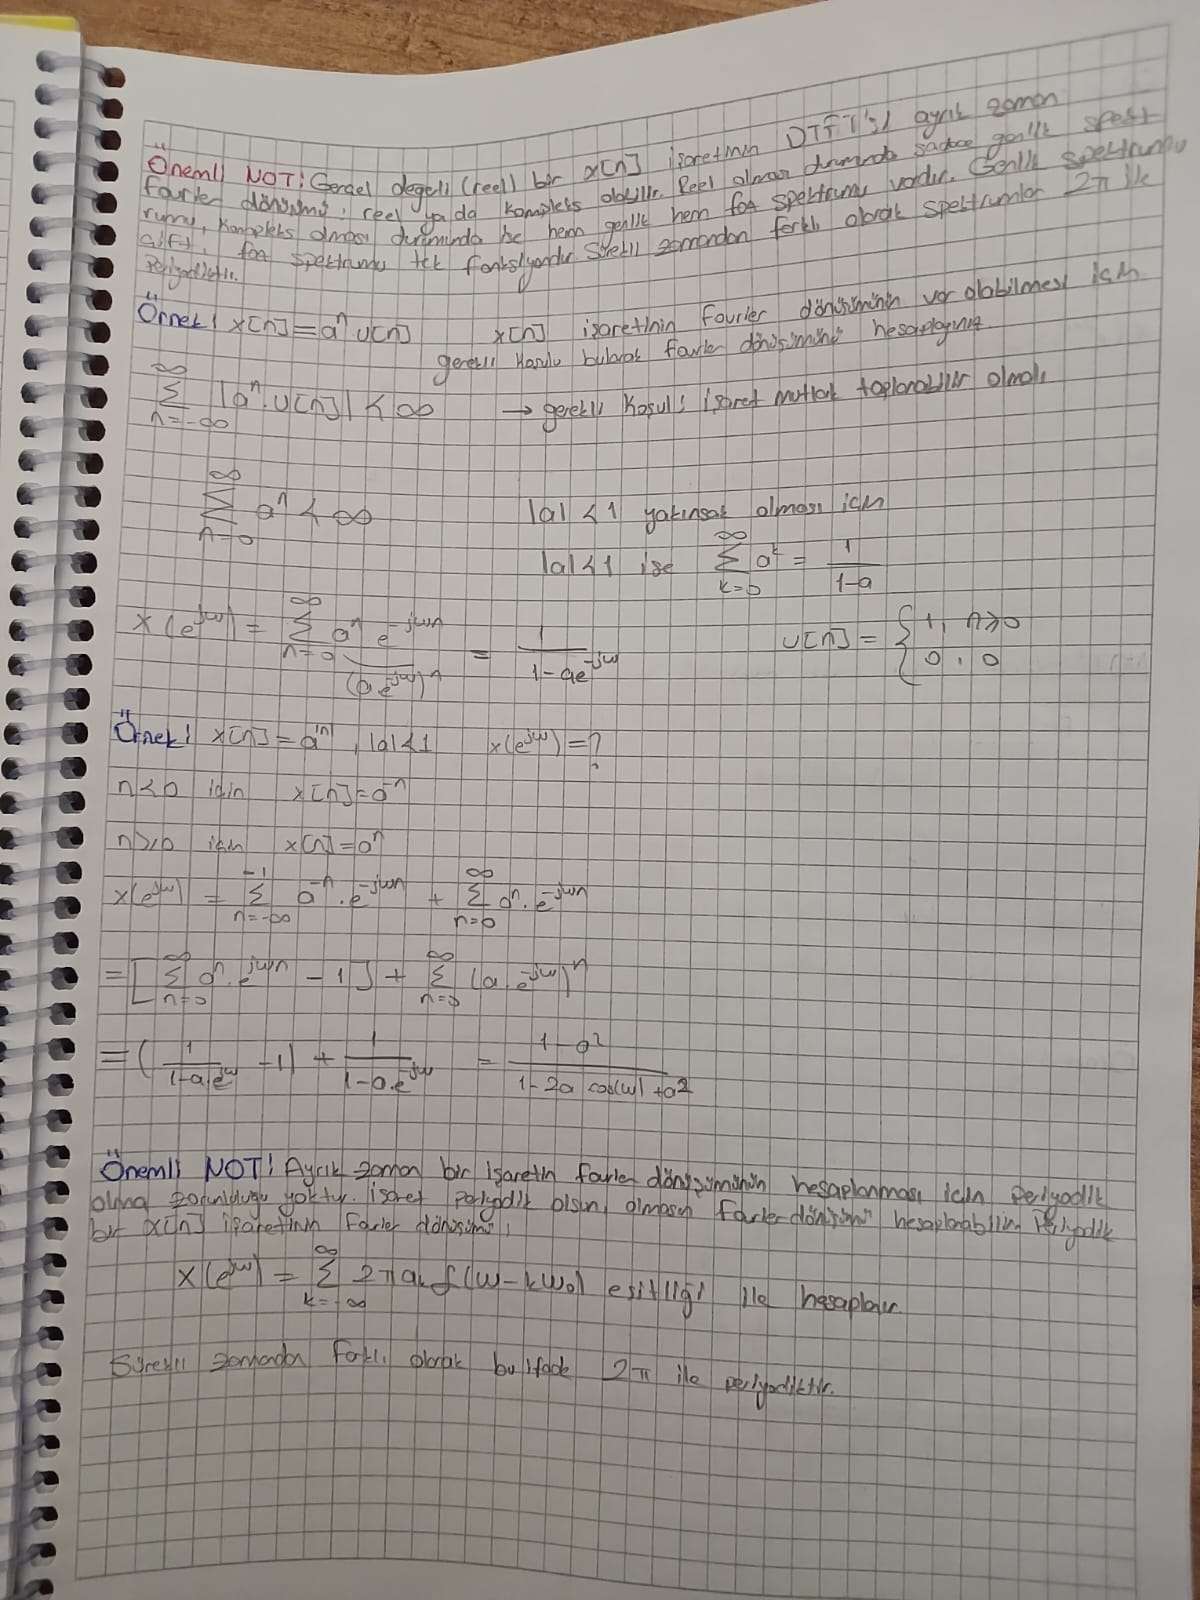 Önemli NOT: Gerçel değerli (reel) bir x[n] işaretinin DTFT'si ayrık zaman
fourier dönüşümü, reel ya da kompleks olabilir. Reel olması durumunda sadece genlik spekt
rumu, kompleks olması durumunda ise hem genlik hem faz spektrumu vardır. Genlik spektrumu
çift, faz spektrumu tek fonksiyondur. Sürekli zamandan farklı olarak spektrumlar 2π ile
periyodiktir.
Örnek: x[n] = aⁿ u[n] x[n] işaretinin fourier dönüşümünün var olabilmesi için
gerekli koşulu bularak fourier dönüşümünü hesaplayınız.
∞ Σ n=-∞ |aⁿ.u[n]| < ∞ → gerekli koşul: işaret mutlak toplanabilir olmalı
∞ Σ n=0 aⁿ < ∞ |a| < 1 yakınsak olması için
|a|<1 ise ∞ Σ k=0 aᵏ = 1/(1-a)
x(e^jw) = ∞ Σ n=0 aⁿ e^-jwn = 1/(1-ae^-jw) u[n] = { 1, n≥0
(a.e^-jw)ⁿ 0, 0
Örnek: x[n] = a^|n|, |a|<1 x(e^jw) = ?
n<0 için x[n] = a^-n
n≥0 için x[n] = aⁿ
x(e^jw) = -1 Σ n=-∞ a^-n . e^-jwn + ∞ Σ n=0 aⁿ . e^-jwn
= [∞ Σ n=0 aⁿ . e^jwn - 1] + ∞ Σ n=0 (a.e^-jw)ⁿ
= (1/(1-a.e^jw) - 1) + 1/(1-a.e^-jw) = (1-a²)/(1-2a cos(w)+a²)
Önemli NOT: Ayrık zaman bir işaretin fourier dönüşümünün hesaplanması için periyodik
olma zorunluluğu yoktur. İşaret periyodik olsun, olmasın fourier dönüşümü hesaplanabilir. Periyodik
bir x[n] işaretinin fourier dönüşümü,
x(e^jw) = ∞ Σ k=-∞ 2π ak δ(w-kw₀) eşitliği ile hesaplanır.
Sürekli zamandan farklı olarak bu ifade 2π ile periyodiktir.